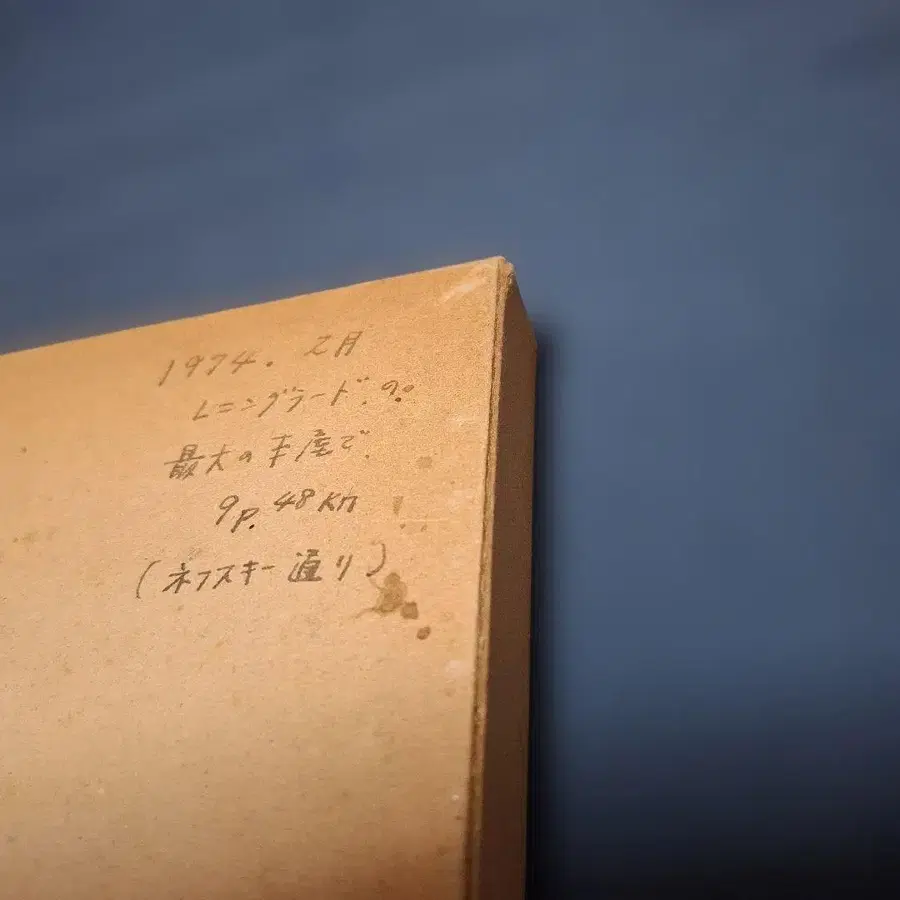 1974. 2月
レニングラード.の
最大の本屋で.
9p. 48кп
(ネフスキー通り)